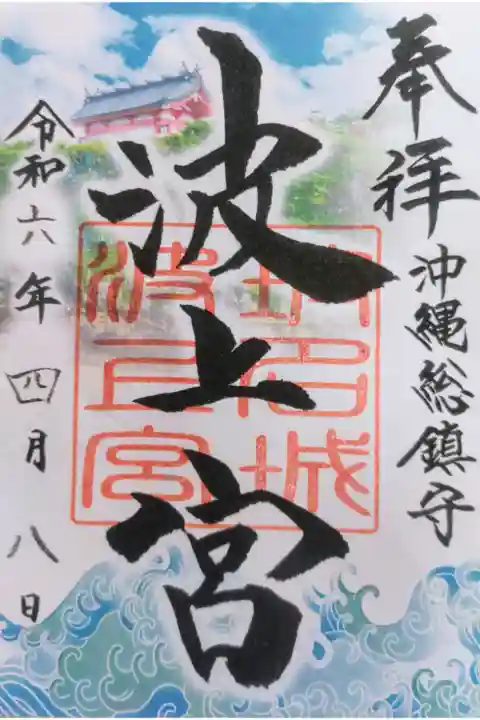 奉拝
沖縄総鎮守
波上宮
那覇城
波上宮
令和六年四月八日